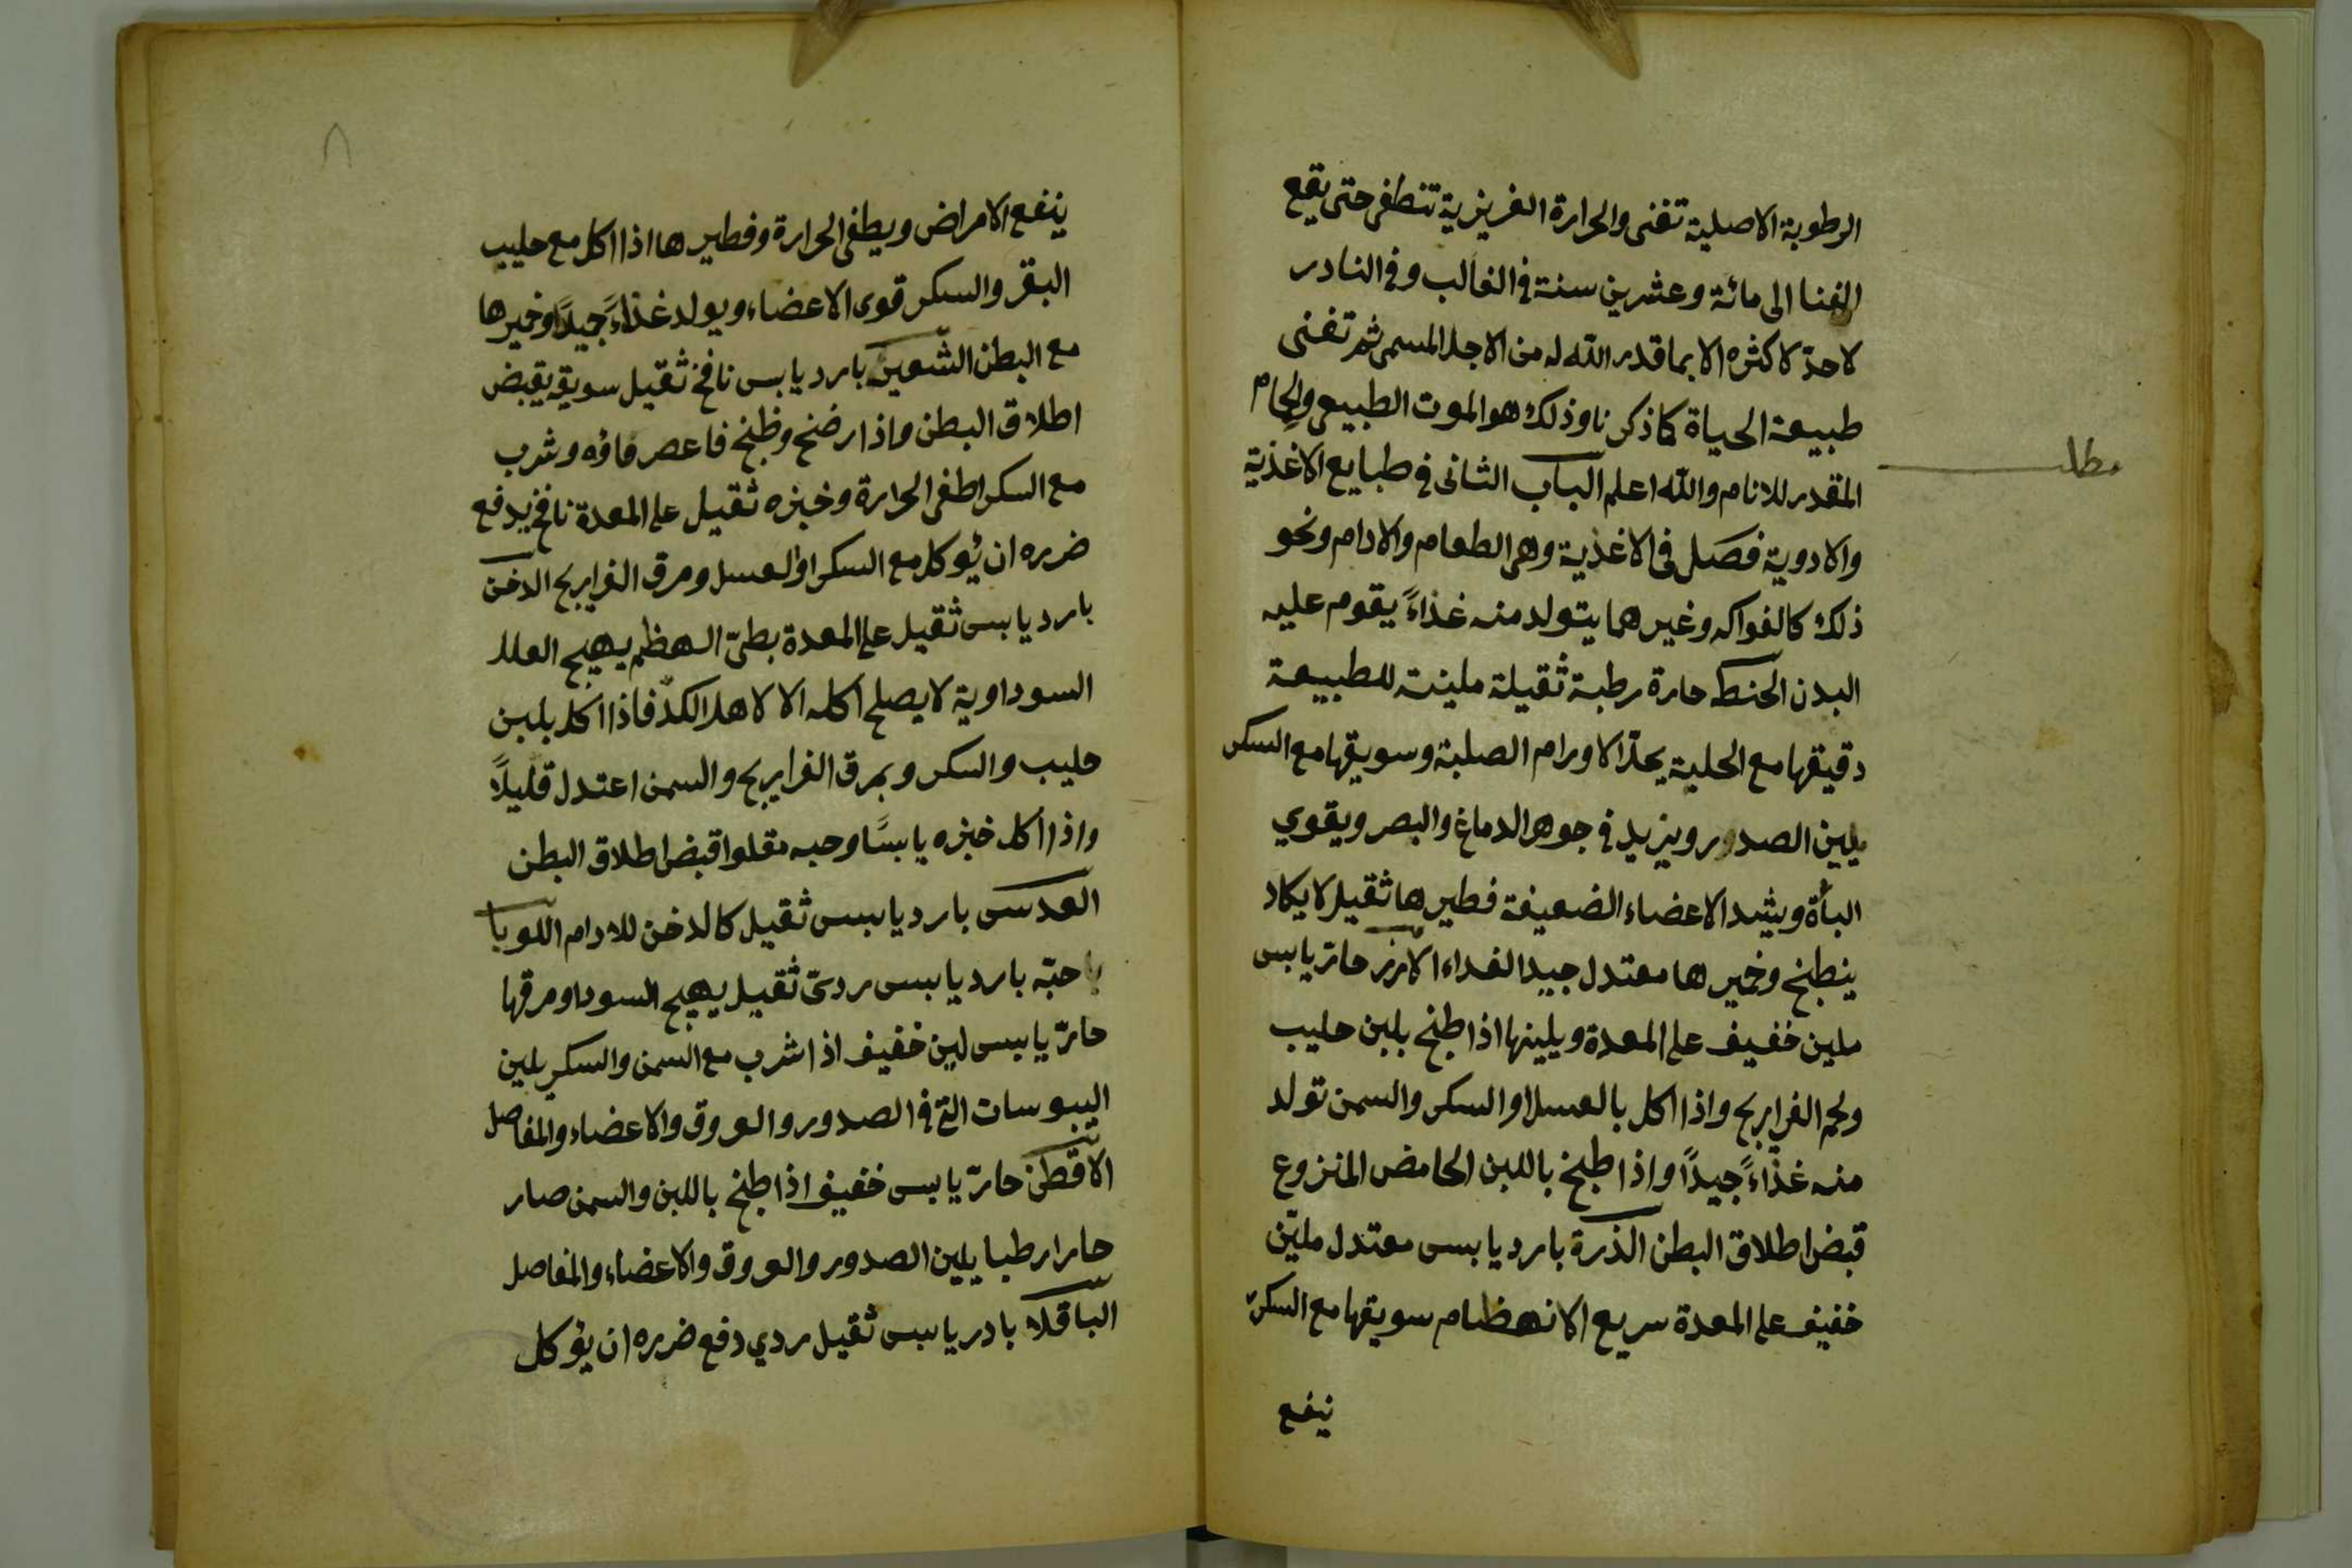 الرطوبة الاصلية تفنى والحرارة الغريزية تنطفى حتى يقع
الفنا الى مائة وعشرين سنة فى الغالب وفى النادر
لاحدّ لاكثره الا بما قدر الله له من الاجل المسمى ثم تفنى
طبيعة الحياة كما ذكرنا وذلك هو الموت الطبيعى والحمام
المقدر للانام والله اعلم الباب الثانى فى طبايع الاغذية
مطلب
والادوية فصل فى الاغذية وهى الطعام والادام ونحو
ذلك كالفواكه وغيرهما يتولد منه غذاءً يقوم عليه
البدن الحنطه حارة رطبة ثقيلة ملينة للطبيعة
دقيقها مع الحلبة يحلّ الاورام الصلبة وسويقها مع السكر
يلين الصدور ويزيد فى جوهر الدماغ والبصر ويقوي
البأة ويشد الاعضاء الضعيفة فطيرها ثقيل لا يكاد
ينطبخ وخميرها معتدل جيد الغداء الارز حارّ يابس
ملين خفيف على المعدة ويلينها اذا طبخ بلبن حليب
ولحم الفراريج واذا اكل بالعسل او السكر والسمن تولد
منه غذاءً جيداً واذا طبخ باللبن الحامض المنزوع
قبض اطلاق البطن الذرة بارد يابس معتدل مليّن
خفيف على المعدة سريع الانهظام سويقها مع السكر
ينفع
٨
ينفع الامراض ويطفى الحرارة وفطيرها اذا اكل مع حليب
البقر والسكر قوى الاعضاء ويولد غذاءً جيداً وخميرها
مع البطن الشعير بارد يابس نافخ ثقيل سويقه يقبض
اطلاق البطن واذا رضخ وطبخ فاعصر ماؤه وشرب
مع السكر اطفى الحرارة وخبزه ثقيل على المعدة نافخ يدفع
ضرره ان يُوكل مع السكر او العسل ومرق الفراريج الدخن
بارد يابس ثقيل على المعدة بطىّ الهظم يهيج العلل
السوداوية لا يصلح اكله الا لاهل الكدّ فاذا اكل بلبن
حليب والسكر وبمرق الفراريج والسمن اعتدل قليلاً
واذا اكل خبزه يابسًا وحبه مقلوا قبض اطلاق البطن
العدس بارد يابس ثقيل كالدخن للادام اللوبيا
حبّه بارد يابس ردىّ ثقيل يهيج السودا ومرقها
حارّ يابس لين خفيف اذا شرب مع السمن والسكر يلين
اليبوسات التى فى الصدور والعروق والاعضاء والمفاصل
الاقطن حارّ يابس خفيف اذا طبخ باللبن والسمن صار
حارا رطبا يلين الصدور والعروق والاعضاء والمفاصل
الباقلا بادر يابس ثقيل ردي دفع ضرره ان يؤكل